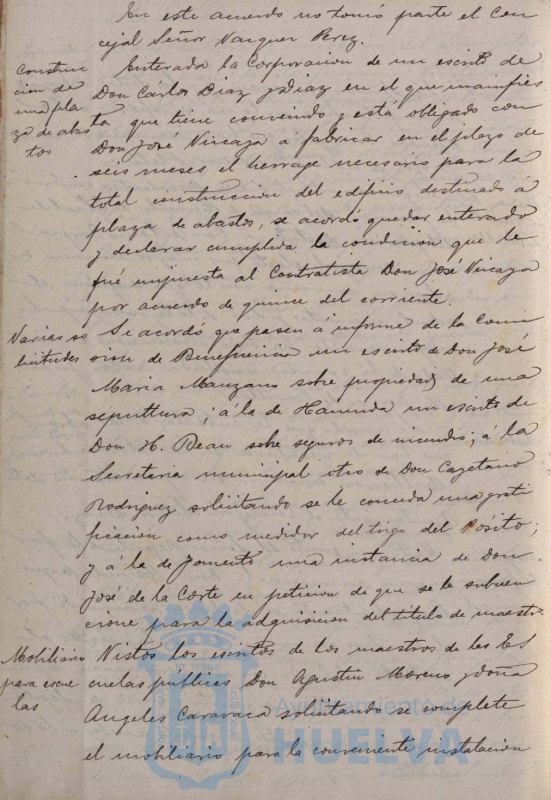 En este acuerdo no tomó parte el Con
cejal Señor Vazquez Perez.
Construc
cion de
una pla
za de abas
tos
Enterada la Corporacion de un escrito de
Don Carlos Diaz y Diaz en el que manifies
ta que tiene convenido y está obligado con
Don José Vizcaya á fabricar en el plazo de
seis meses el herrage necesario para la
total construccion del edificio destinado á
plaza de abastos, se acordó quedar enterado
y declarar cumplida la condicion que le
fué impuesta al Contratista Don José Vizcaya
por acuerdo de quince del corriente.
Varias so
licitudes
Se acordó que pasen á informe de la Comi
sion de Beneficencia un escrito de Don José
Maria Manzano sobre propiedad de una
sepultura; á la de Hacienda un escrito de
Don H. Beau sobre seguros de incendio; á la
Secretaria municipal otro de Don Cayetano
Rodriguez solicitando se le conceda una grati
ficacion como medidor del trigo del Pósito;
y á la de Fomento una instancia de Don
José de la Corte en peticion de que se le subven
cione para la adquisicion del titulo de maestro.
Mobiliario
para escue
las
Vistos los escritos de los maestros de las Es
cuelas públicas Don Agustin Moreno y Doña
Angeles Caravaca solicitando se complete
el mobiliario para la conveniente instalacion
Ayuntamiento de
HUELVA